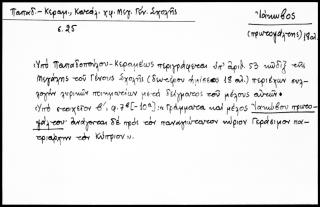 Παπαδ.-Κεραμ., Καταλ. χφ. Μεγ. Γέν. Σχολῆς
Ἰάκωβος
(πρωτοψάλτης) 19 αἰ.
σ. 25
Ὑπὸ Παπαδοπούλου-Κεραμέως περιγράφεται ὑπ' ἀριθ. 53 κῶδιξ τῆς
Μεγάλης τοῦ Γένους Σχολῆς (δευτέρου ἡμίσεως 18 αἰ.) περιέχων συλ-
λογὴν λυρικῶν ποιηματίων μετὰ δείγματος τοῦ μέλους αὐτῶν.
Ὑπὸ στοιχεῖον β', φ. 7β - 10α: «γράμματα καὶ μέλος Ἰακώβου πρωτο-
ψάλτου· ἀνάγεται δὲ πρὸς τὸν παναγιώτατον κύριον Γεράσιμον πα-
τριάρχην τὸν Κύπριον».